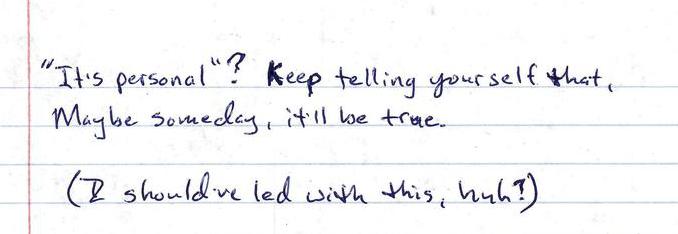 "It's personal"? Keep telling yourself that,
Maybe someday, it'll be true.
(I should've led with this, huh?)